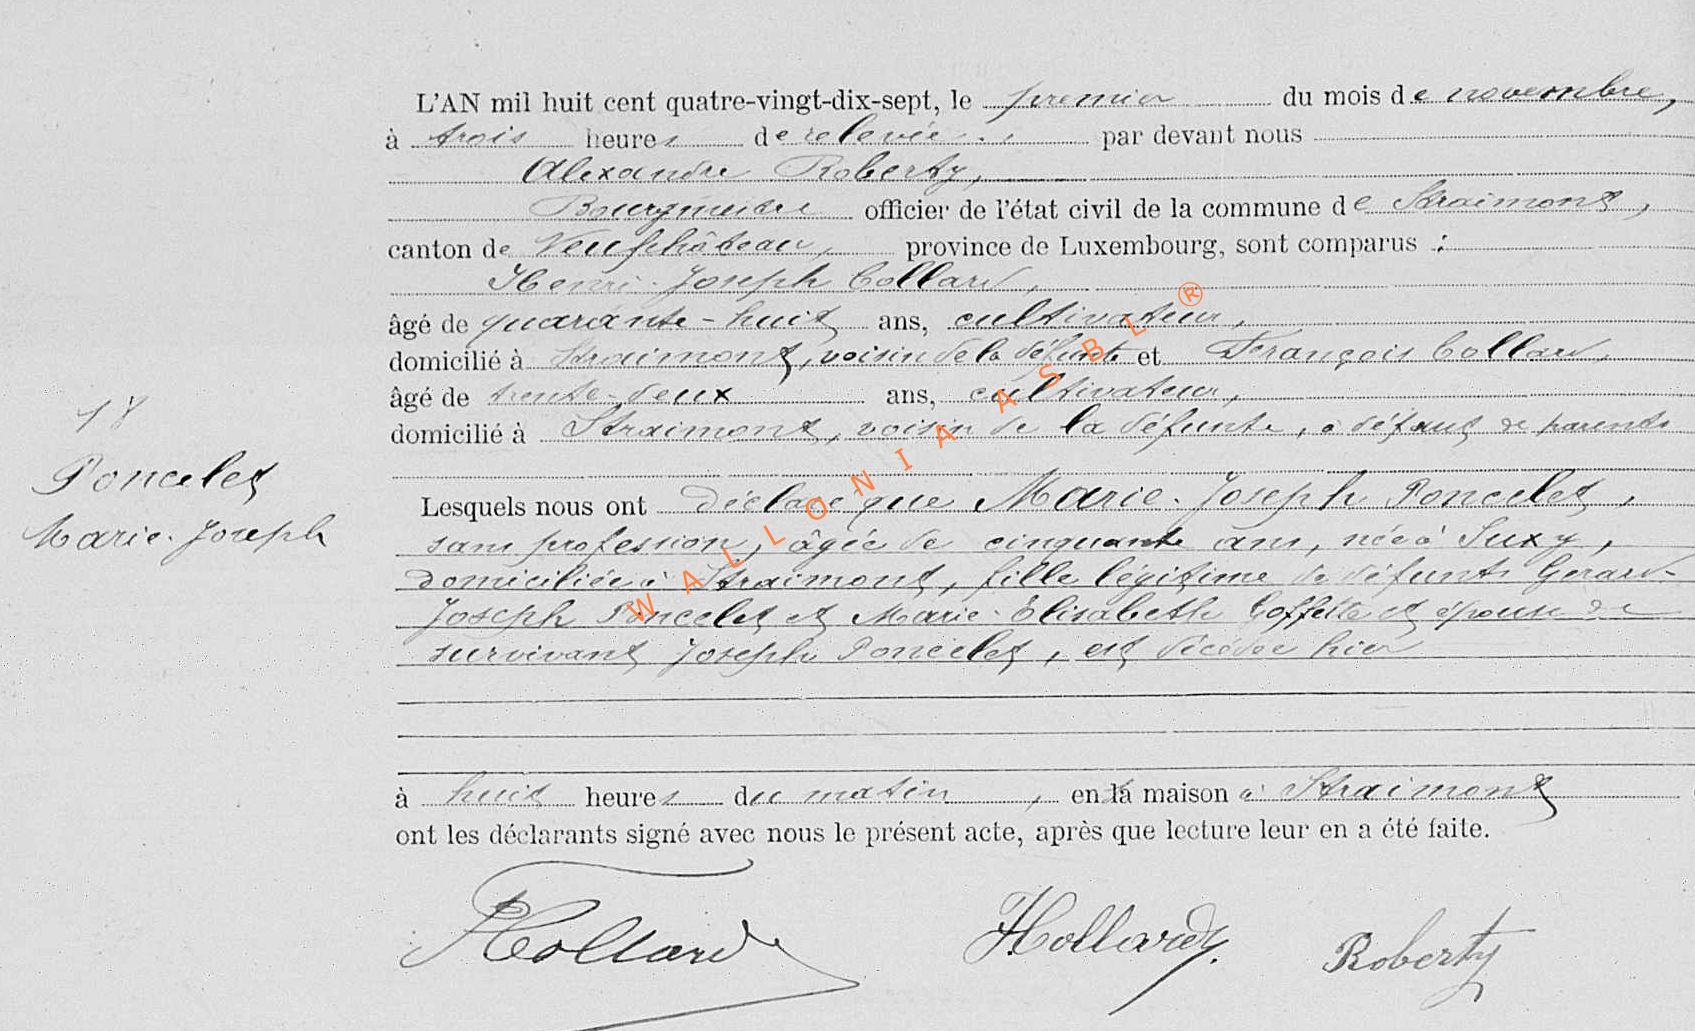 L'AN mil huit cent quatre-vingt-dix-sept, le premier du mois de novembre,
à trois heures de relevée par devant nous
Alexandre Roberty,
Bourgmestre officier de l'état civil de la commune de Straimont,
canton de Neufchâteau, province de Luxembourg, sont comparus :
Henri-Joseph Collard,
âgé de quarante-huit ans, cultivateur,
domicilié à Straimont, voisin de la défunte et François Collard,
âgé de trente-deux ans, cultivateur,
domicilié à Straimont, voisin de la défunte, à défaut de parents
18
Poncelet
Marie-Joseph
Lesquels nous ont déclaré que Marie-Joseph Poncelet,
sans profession, âgée de cinquante ans, née à Suxy,
domiciliée à Straimont, fille légitime de défunts Gérard-
Joseph Poncelet et Marie-Élisabeth Goffette et épouse de
survivant Joseph Poncelet, est décédée hier
à huit heures du matin, en la maison à Straimont
ont les déclarants signé avec nous le présent acte, après que lecture leur en a été faite.
Collard
HCollard
Roberty
WALLONIA ASBL ®